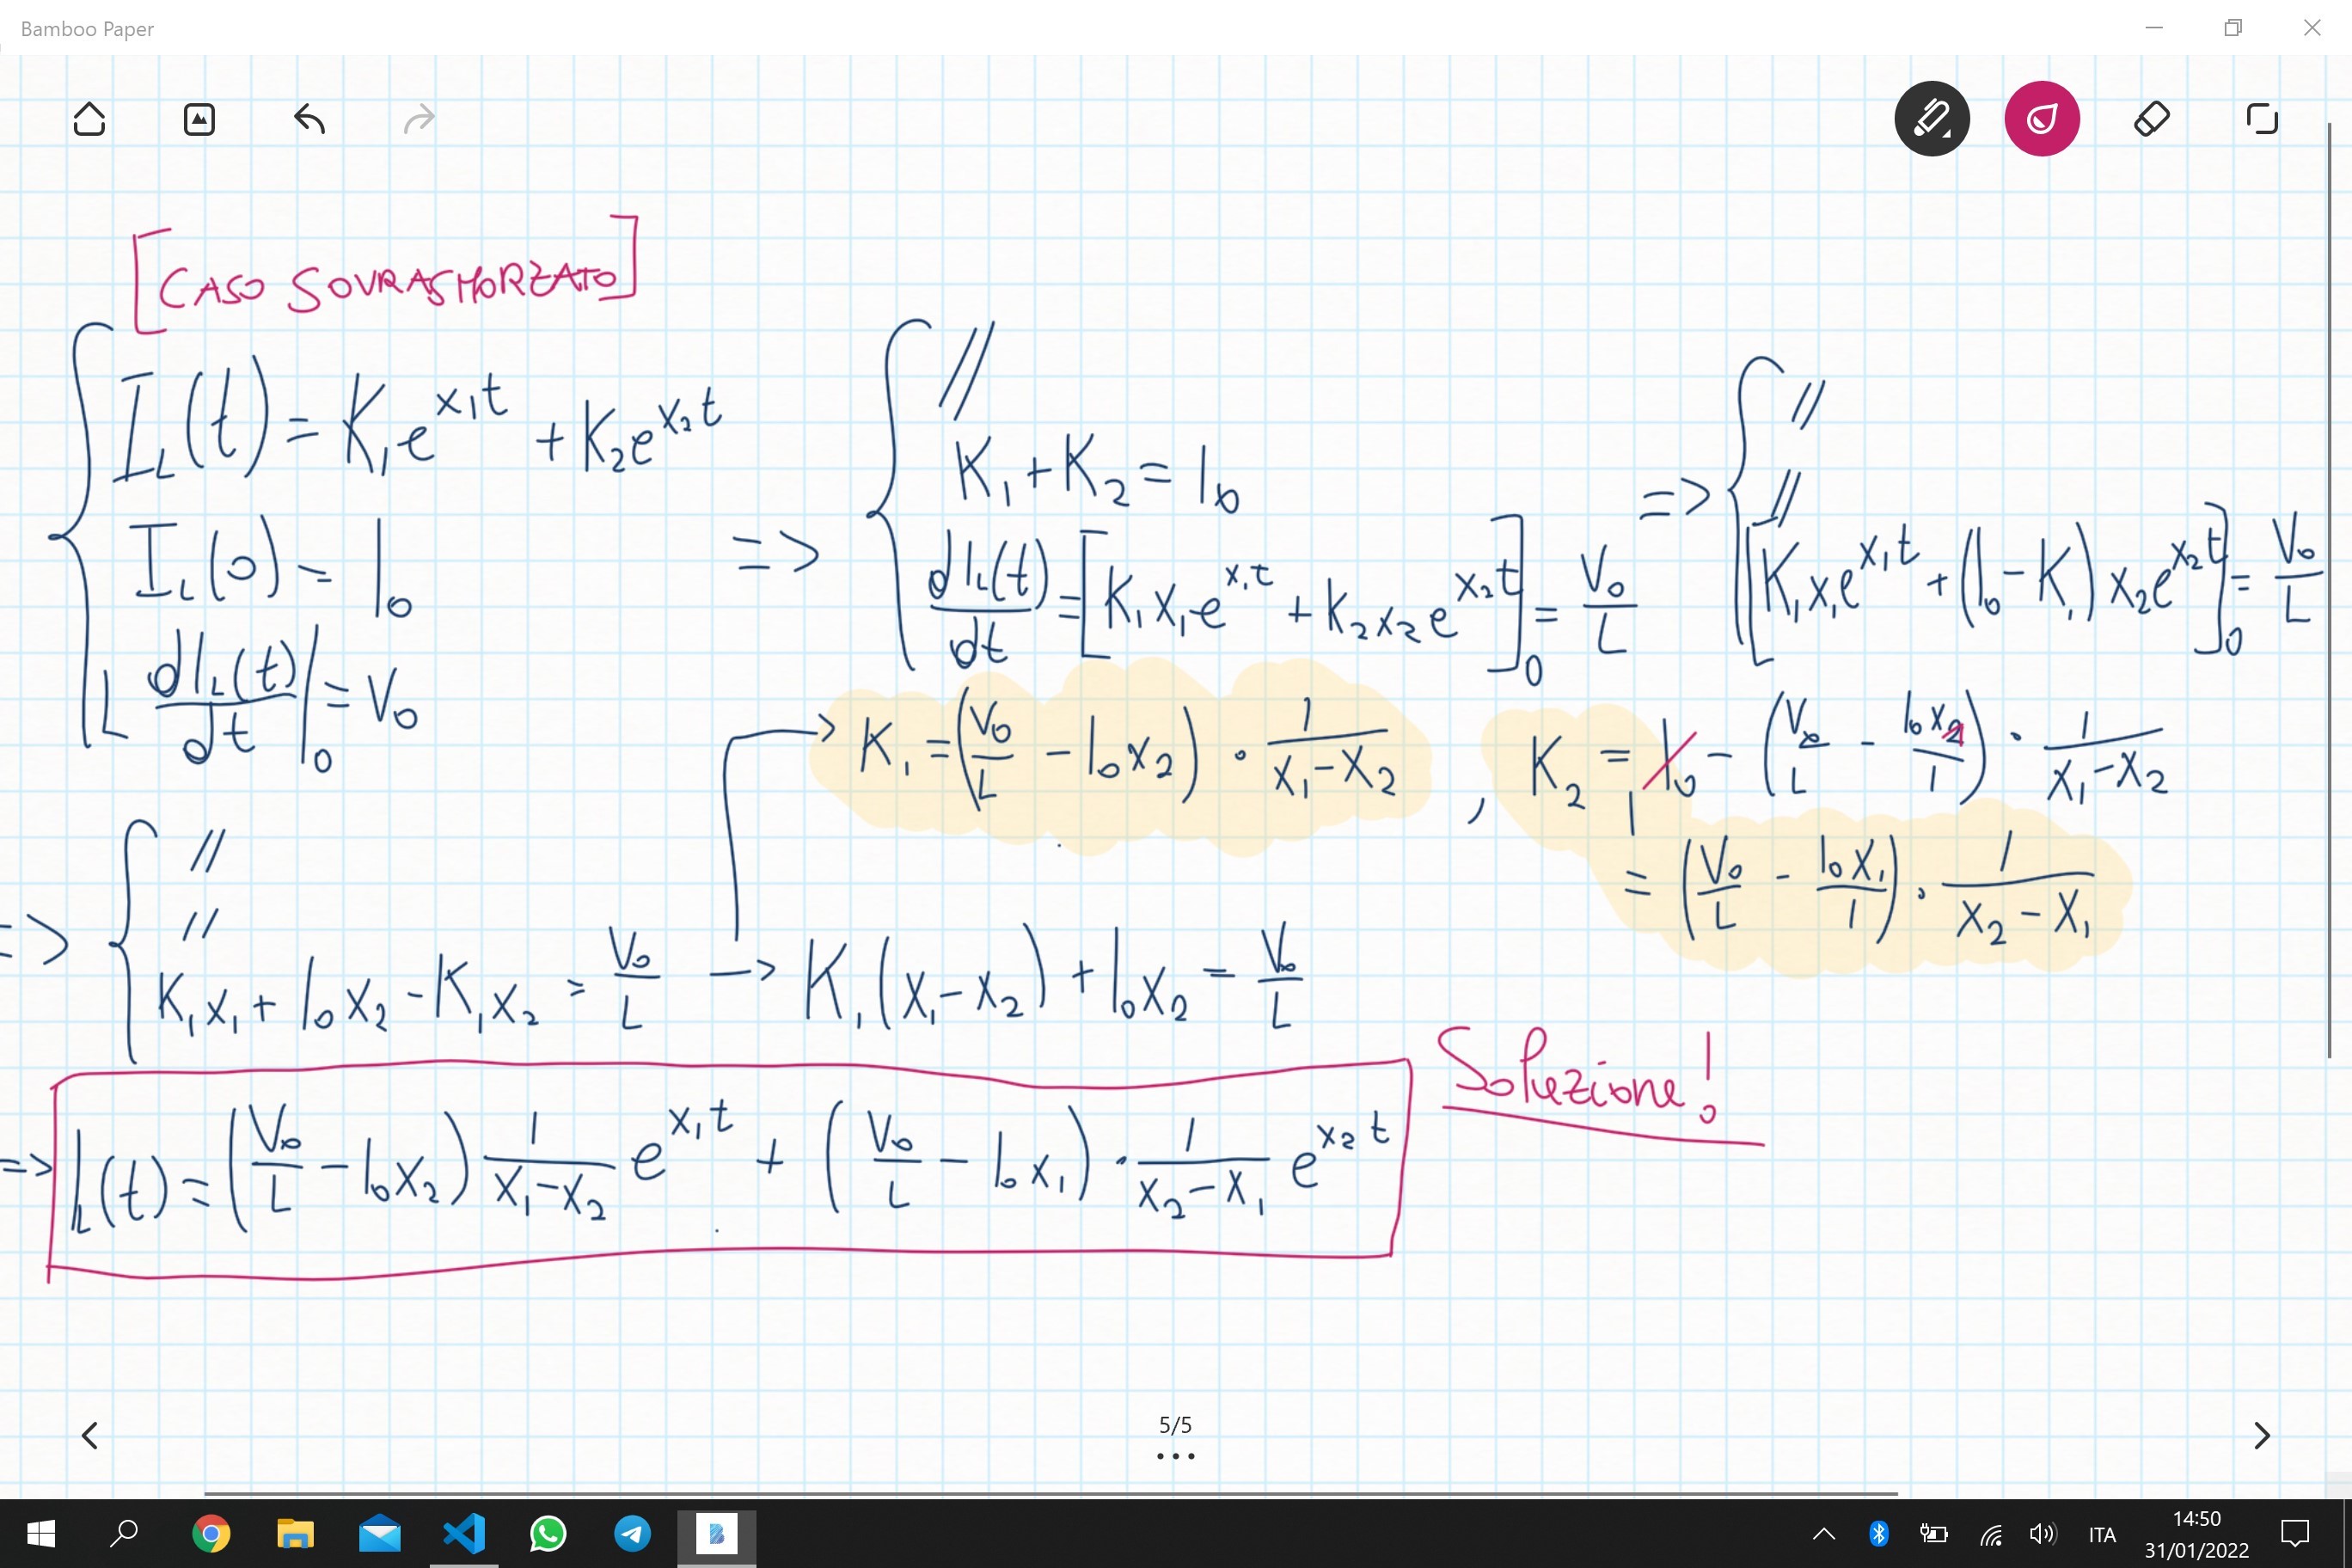 Bamboo Paper
[CASO SOVRASMORZATO]
I_L(t) = K₁e^{x₁t} + K₂e^{x₂t}
I_L(0) = I₀
L dI_L(t)/dt |₀ = V₀
=>
//
K₁ + K₂ = I₀
dI_L(t)/dt = [K₁x₁e^{x₁t} + K₂x₂e^{x₂t}]₀ = V₀/L
=>
//
//
[K₁x₁e^{x₁t} + (I₀ - K₁)x₂e^{x₂t}]₀ = V₀/L
=>
//
//
K₁x₁ + I₀x₂ - K₁x₂ = V₀/L -> K₁(x₁ - x₂) + I₀x₂ = V₀/L
-> K₁ = (V₀/L - I₀x₂) · 1/(x₁ - x₂) , K₂ = I₀ - (V₀/L - I₀x₁/1) · 1/(x₁ - x₂)
= (V₀/L - I₀x₁/1) · 1/(x₂ - x₁)
=> I_L(t) = (V₀/L - I₀x₂) 1/(x₁ - x₂) e^{x₁t} + (V₀/L - I₀x₁) · 1/(x₂ - x₁) e^{x₂t}
Soluzione!
5/5
ITA
14:50
31/01/2022